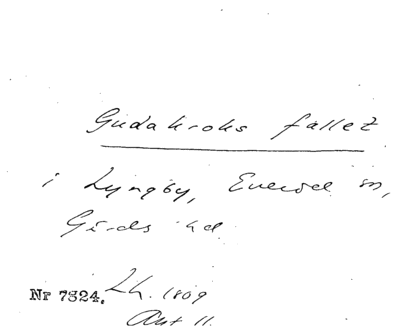 Gudakroks fallet
i Lyngby, Everöd sn,
Gärds hd
Nr 7324. Lh. 1809
Akt 11.